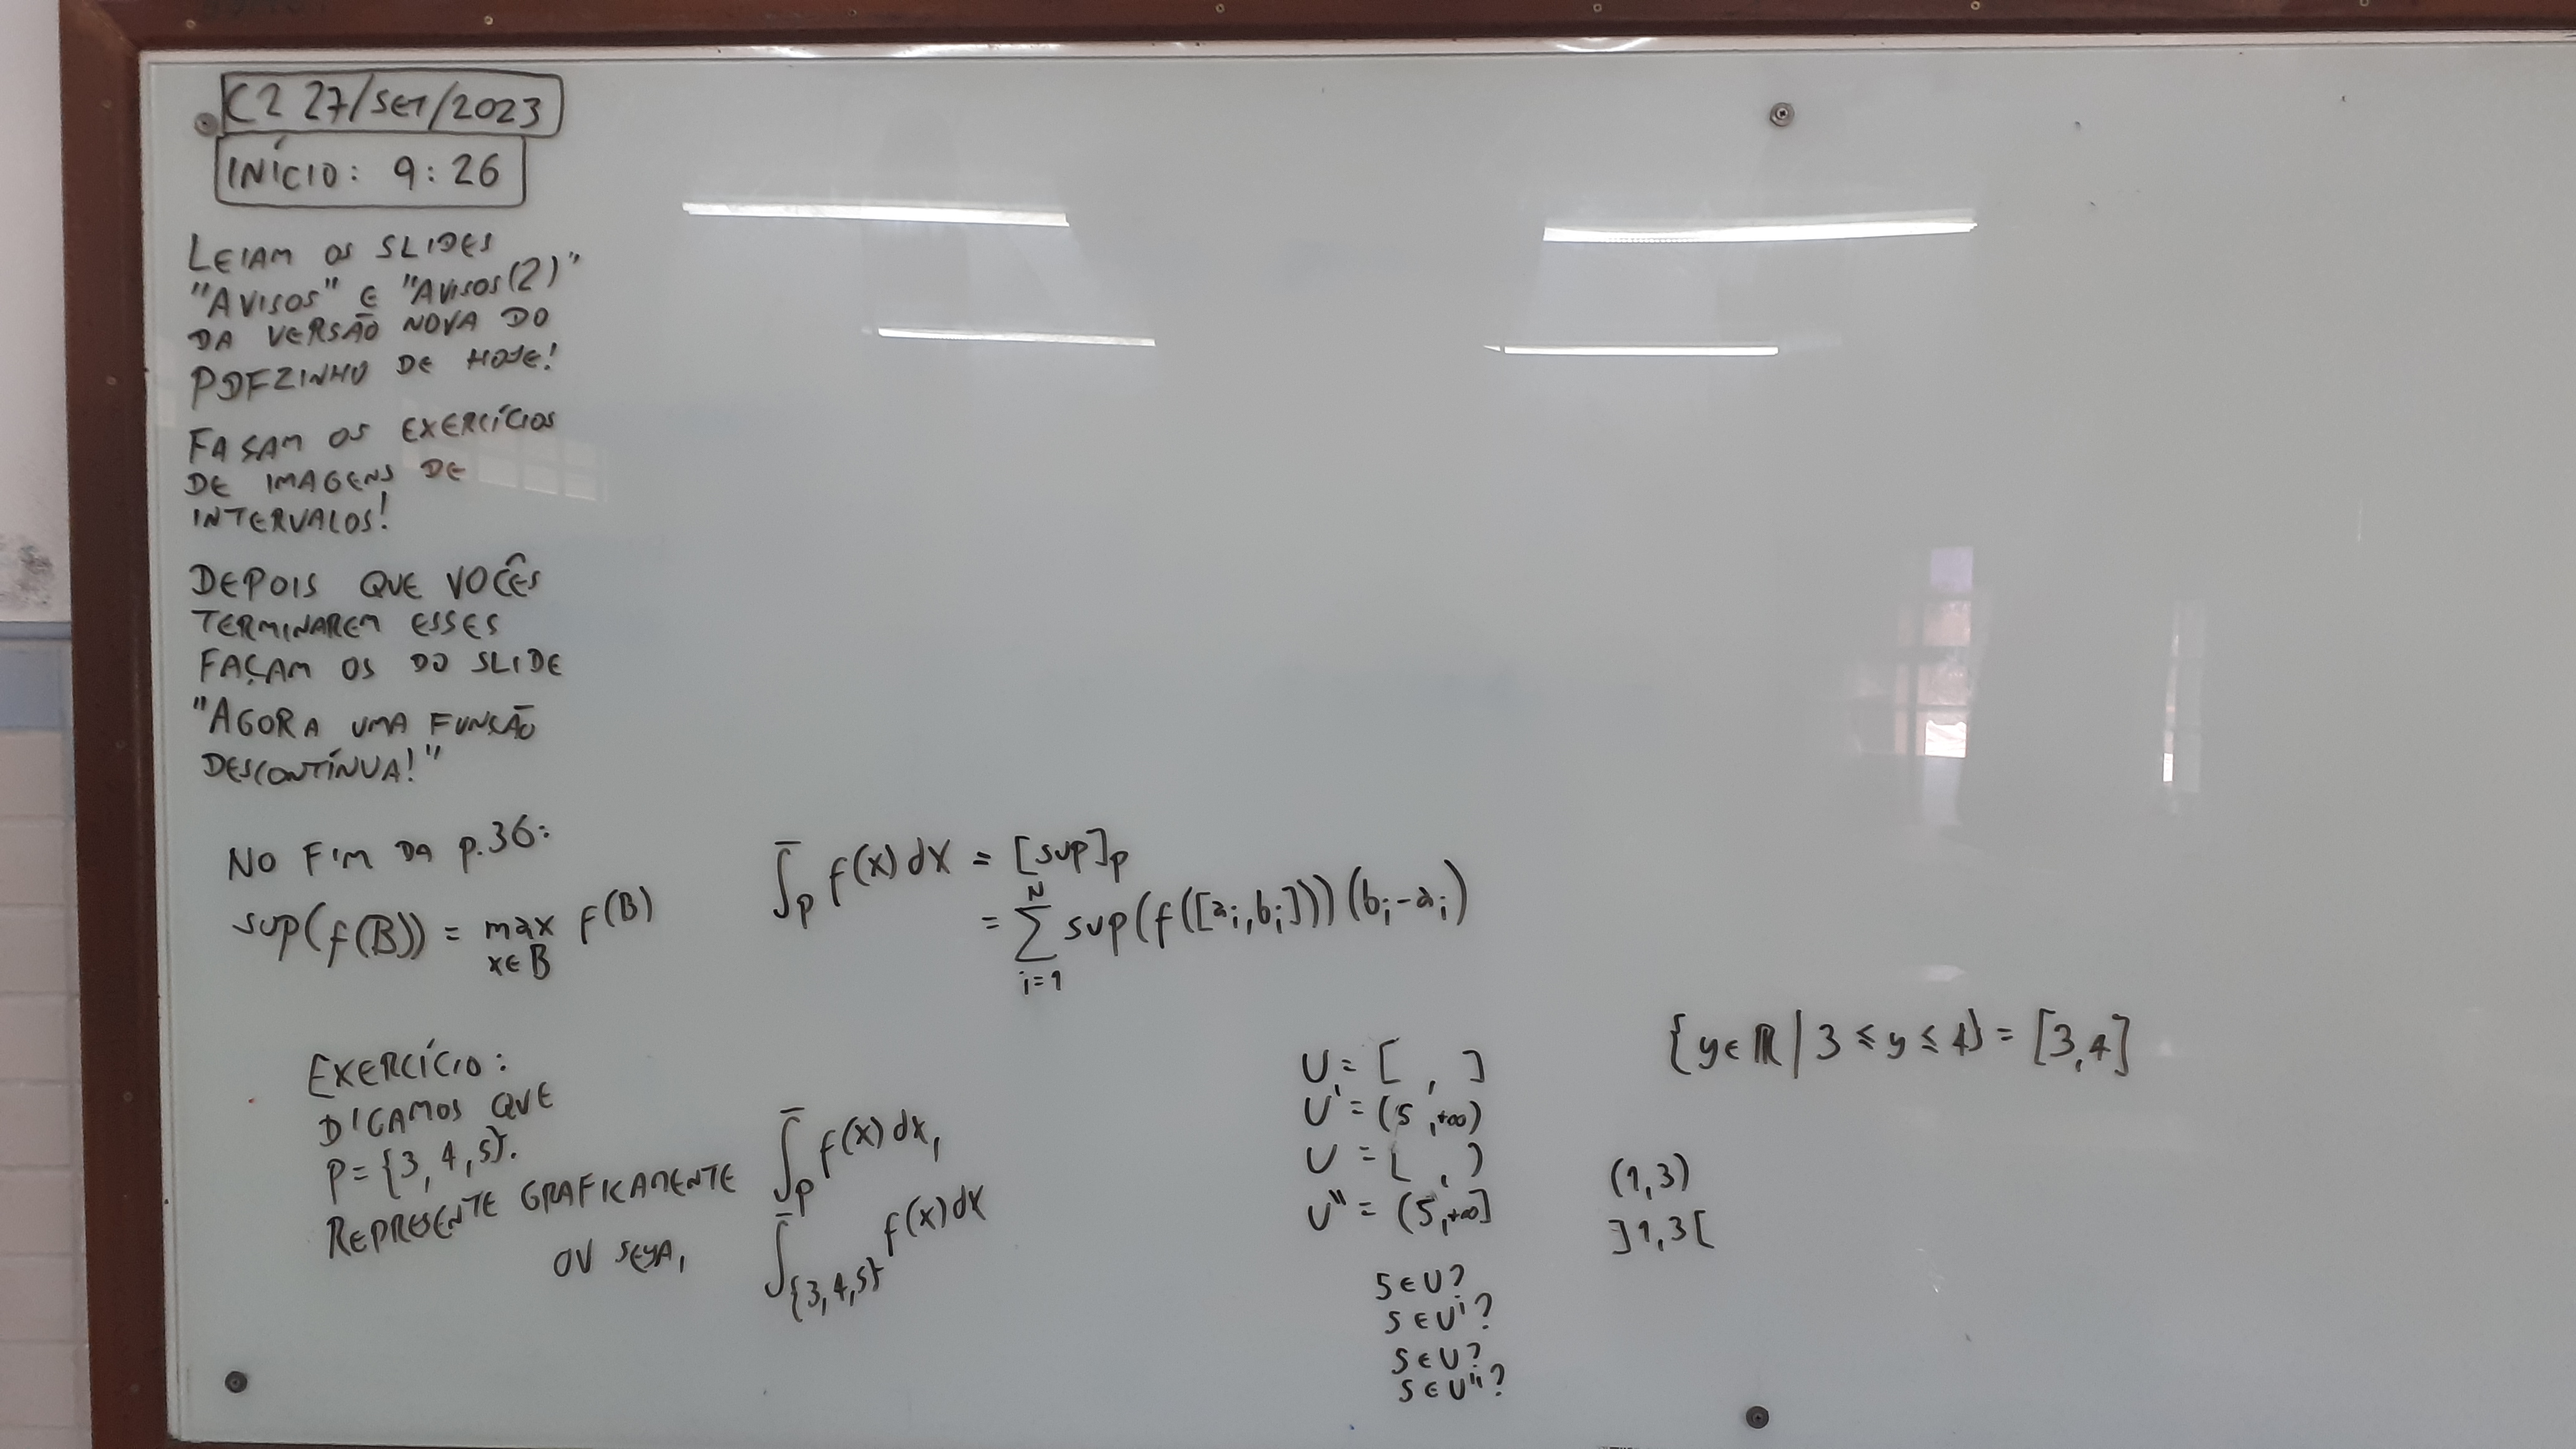 C2 27/SET/2023
INÍCIO: 9:26
LEIAM OS SLIDES
"AVISOS" E "AVISOS(2)"
DA VERSÃO NOVA DO
PDFZINHO DE HOJE!
FAÇAM OS EXERCÍCIOS
DE IMAGENS DE
INTERVALOS!
DEPOIS QUE VOCÊS
TERMINAREM ESSES
FAÇAM OS DO SLIDE
"AGORA UMA FUNÇÃO
DESCONTÍNUA!"
NO FIM DA p.36:
sup(f(B)) = max f(B)
x∈B
‾∫_P f(x) dx = [sup]_P
= ∑_{i=1}^{N} sup(f([a_i,b_i]))(b_i-a_i)
EXERCÍCIO:
DIGAMOS QUE
P={3,4,5}.
REPRESENTE GRAFICAMENTE ‾∫_P f(x) dx,
OU SEJA, ‾∫_{3,4,5} f(x) dx
U = [ , ]
U' = (5,+∞)
U = [ , )
U''' = (5,+∞]
5∈U?
5∈U'?
5∈U?
5∈U'''?
{y∈ℝ | 3 ≤ y ≤ 4} = [3,4]
(1,3)
]1,3[